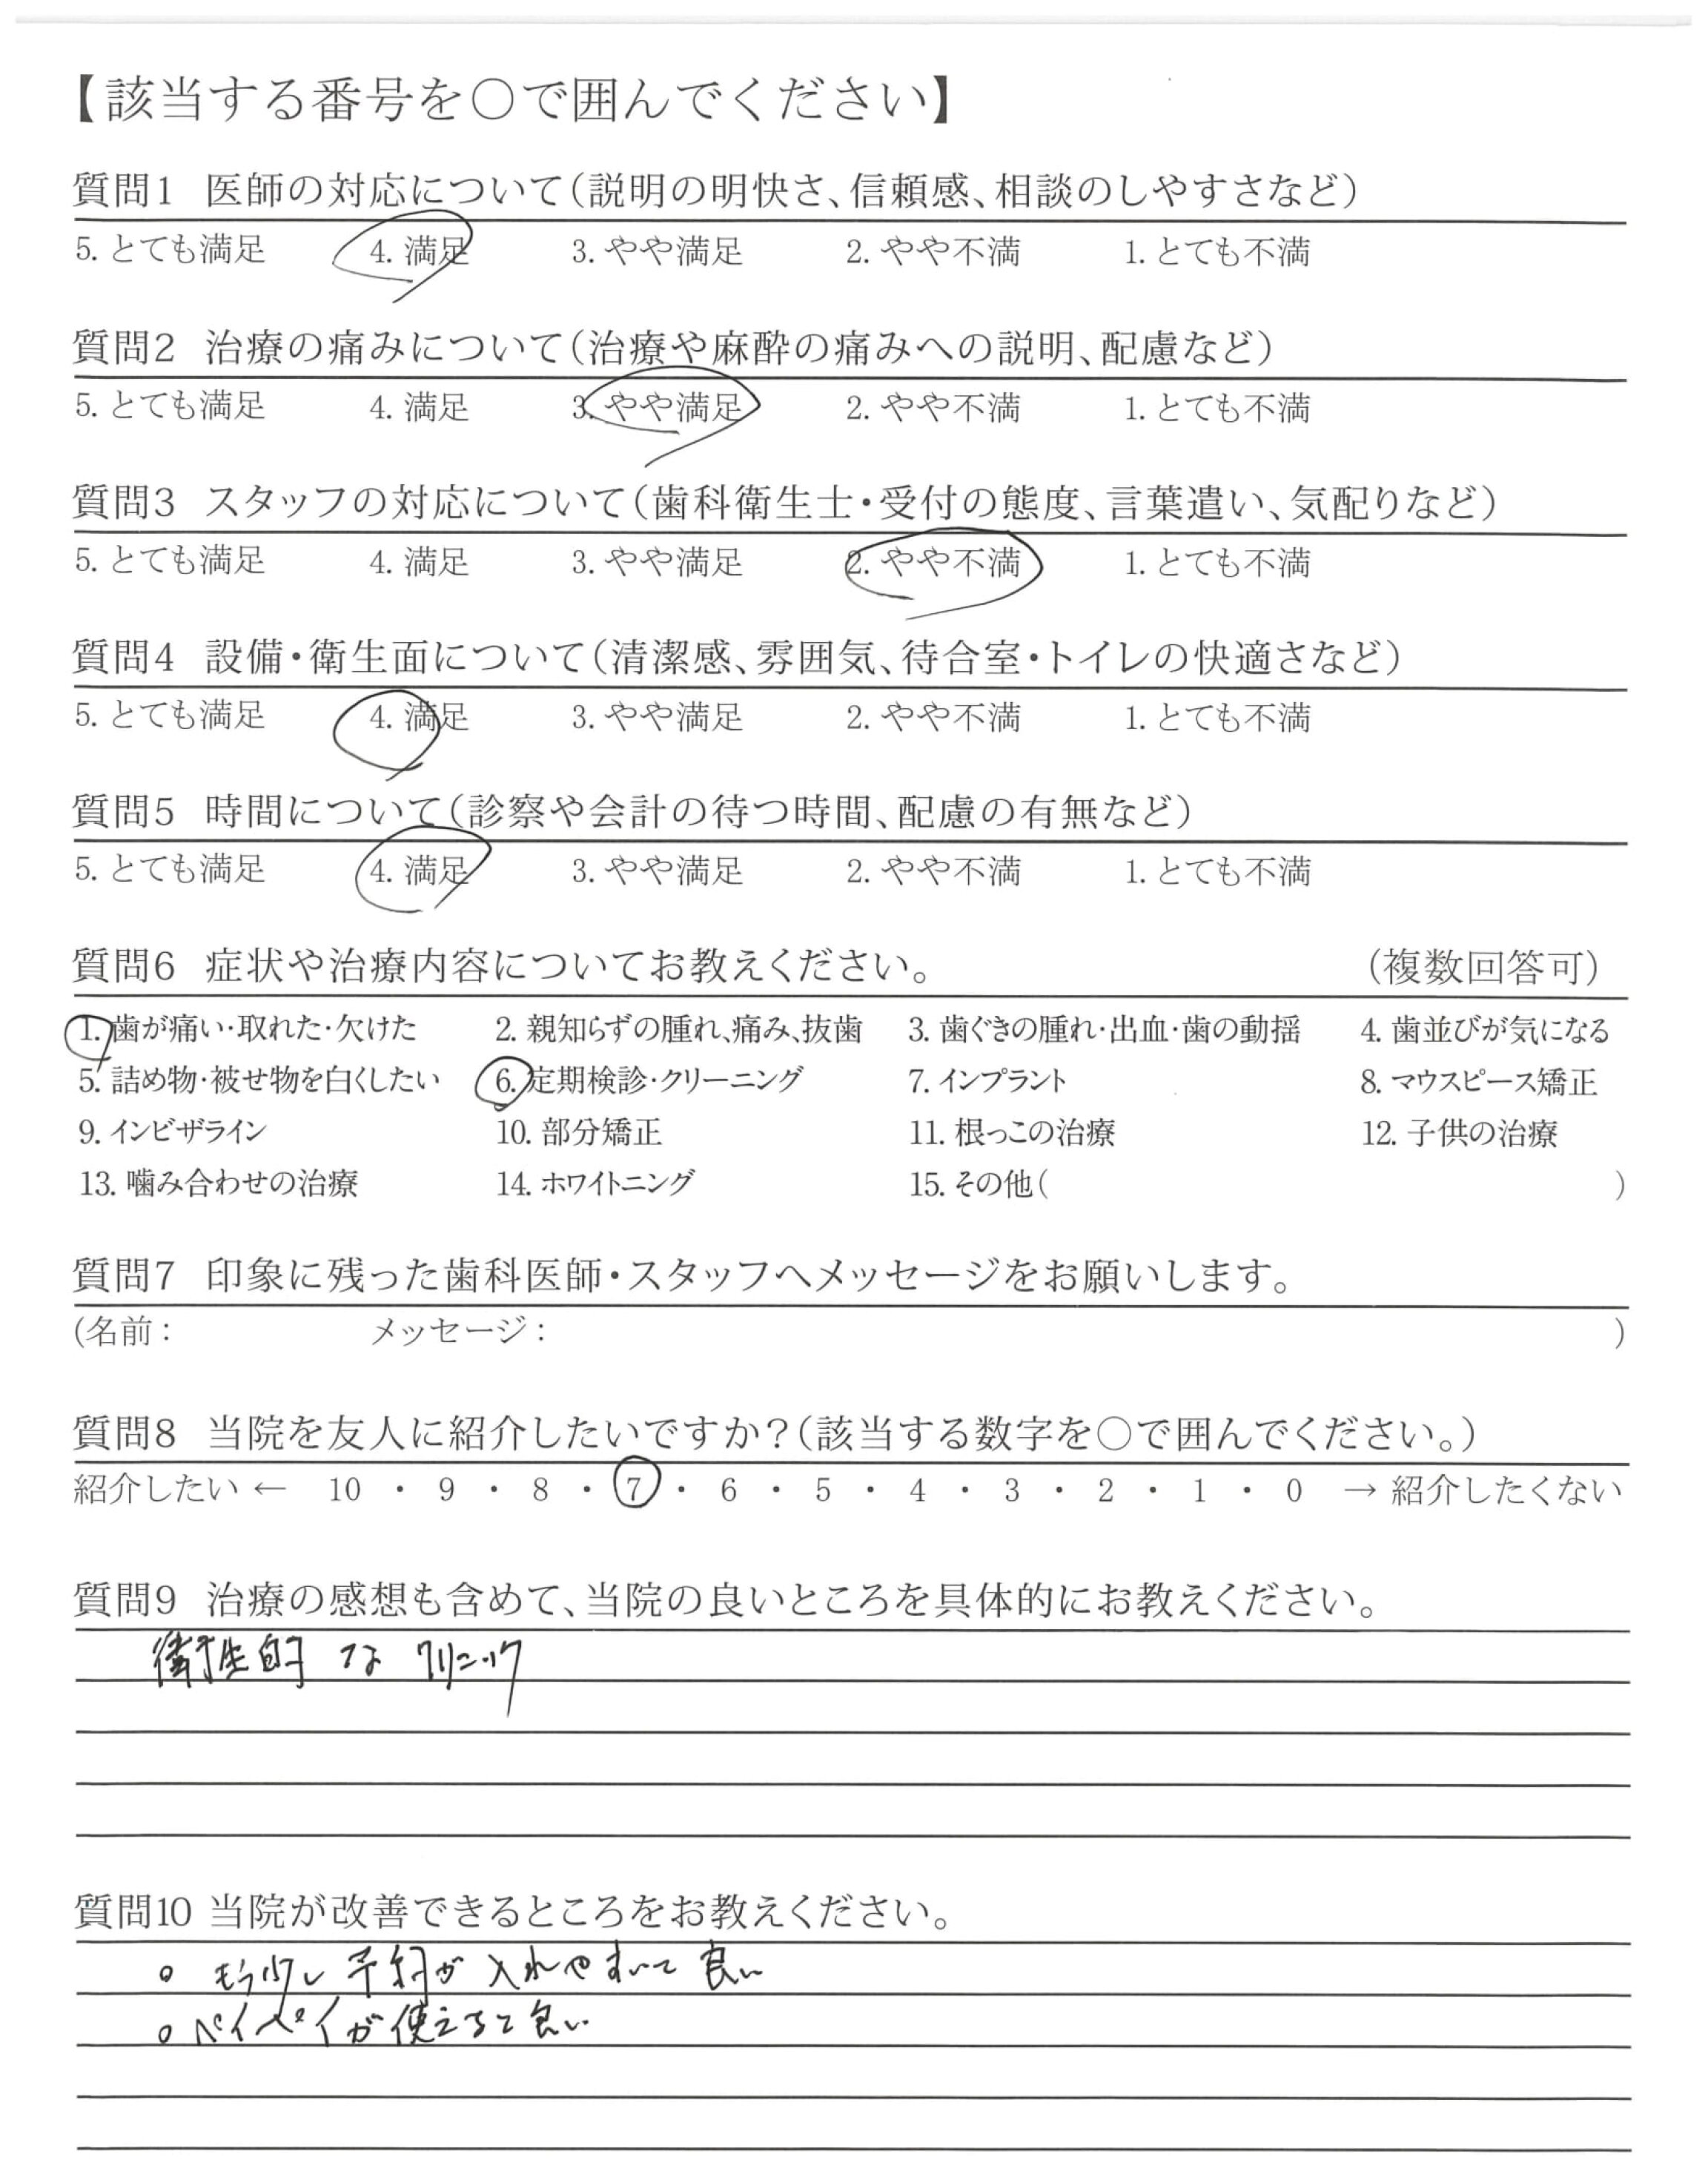 【該当する番号を○で囲んでください】
質問1 医師の対応について(説明の明快さ、信頼感、相談のしやすさなど)
5. とても満足 4. 満足 3. やや満足 2. やや不満 1. とても不満
質問2 治療の痛みについて(治療や麻酔の痛みへの説明、配慮など)
5. とても満足 4. 満足 3. やや満足 2. やや不満 1. とても不満
質問3 スタッフの対応について(歯科衛生士・受付の態度、言葉遣い、気配りなど)
5. とても満足 4. 満足 3. やや満足 2. やや不満 1. とても不満
質問4 設備・衛生面について(清潔感、雰囲気、待合室・トイレの快適さなど)
5. とても満足 4. 満足 3. やや満足 2. やや不満 1. とても不満
質問5 時間について(診察や会計の待つ時間、配慮の有無など)
5. とても満足 4. 満足 3. やや満足 2. やや不満 1. とても不満
質問6 症状や治療内容についてお教えください。 (複数回答可)
1. 歯が痛い・取れた・欠けた 2. 親知らずの腫れ、痛み、抜歯 3. 歯ぐきの腫れ・出血・歯の動揺 4. 歯並びが気になる
5. 詰め物・被せ物を白くしたい 6. 定期検診・クリーニング 7. インプラント 8. マウスピース矯正
9. インビザライン 10. 部分矯正 11. 根っこの治療 12. 子供の治療
13. 噛み合わせの治療 14. ホワイトニング 15. その他( )
質問7 印象に残った歯科医師・スタッフへメッセージをお願いします。
(名前: メッセージ: )
質問8 当院を友人に紹介したいですか?(該当する数字を○で囲んでください。)
紹介したい ← 10 ・ 9 ・ 8 ・ 7 ・ 6 ・ 5 ・ 4 ・ 3 ・ 2 ・ 1 ・ 0 → 紹介したくない
質問9 治療の感想も含めて、当院の良いところを具体的にお教えください。
衛生的な クリニック
質問10 当院が改善できるところをお教えください。
○ もう少し 予約が 入れやすいと 良い
○ ペイペイが使えると良い